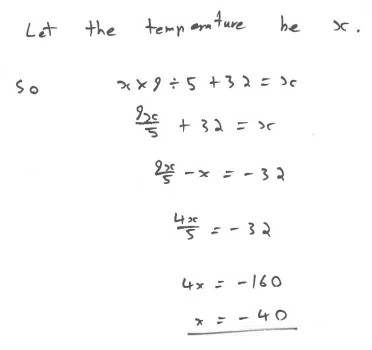 Let the temperature be x.
So x × 9 ÷ 5 + 32 = x
9x/5 + 32 = x
9x/5 - x = -32
4x/5 = -32
4x = -160
x = -40